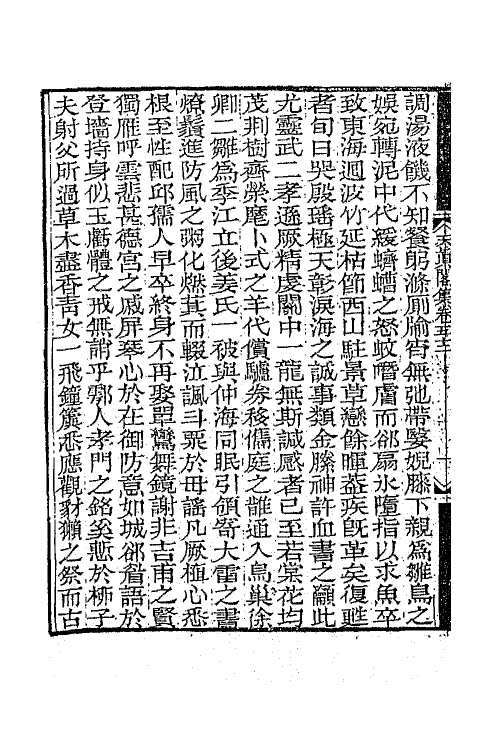 調湯液饑不知餐躬滌厠牏宵無弛帶嬰婗膝下親為雛鳥之
娛宛轉泥中代緩蠐螬之怒蚊噆膚而郤扇氷墮指以求魚卒
致東海迴波竹延枯節西山駐景草戀餘暉葢疾旣革矣復甦
者旬日哭殷璠極天彰淚海之誠事類金縢神許血書之籲此
尤靈武二孝遜厥精虔關中一龍無斯誠感者已至若棠花均
茂荆樹齊榮麾卜式之羊代償驢券移傭庭之雒通入鳥巢徐
卿二雛為季江立後姜氏一被與仲海同眠引領寄大雷之書
燎鬚進防風之粥化燃萁而輟泣諷斗粟於毋謠凡厥植心悉
根至性配邱孺人早卒終身不再娶單鸞舞鏡謝非吉甫之賢
獨雁呼雲悲甚德宮之戚屏琴心於在御防意如城郤簉語於
登墻持身似玉虧體之戒無誚乎鄹人孝門之銘奚慙於栁子
夫射父所過草木盡香靑女一飛鐘簴悉應觀豺獺之祭而古
天眞閣集卷五十